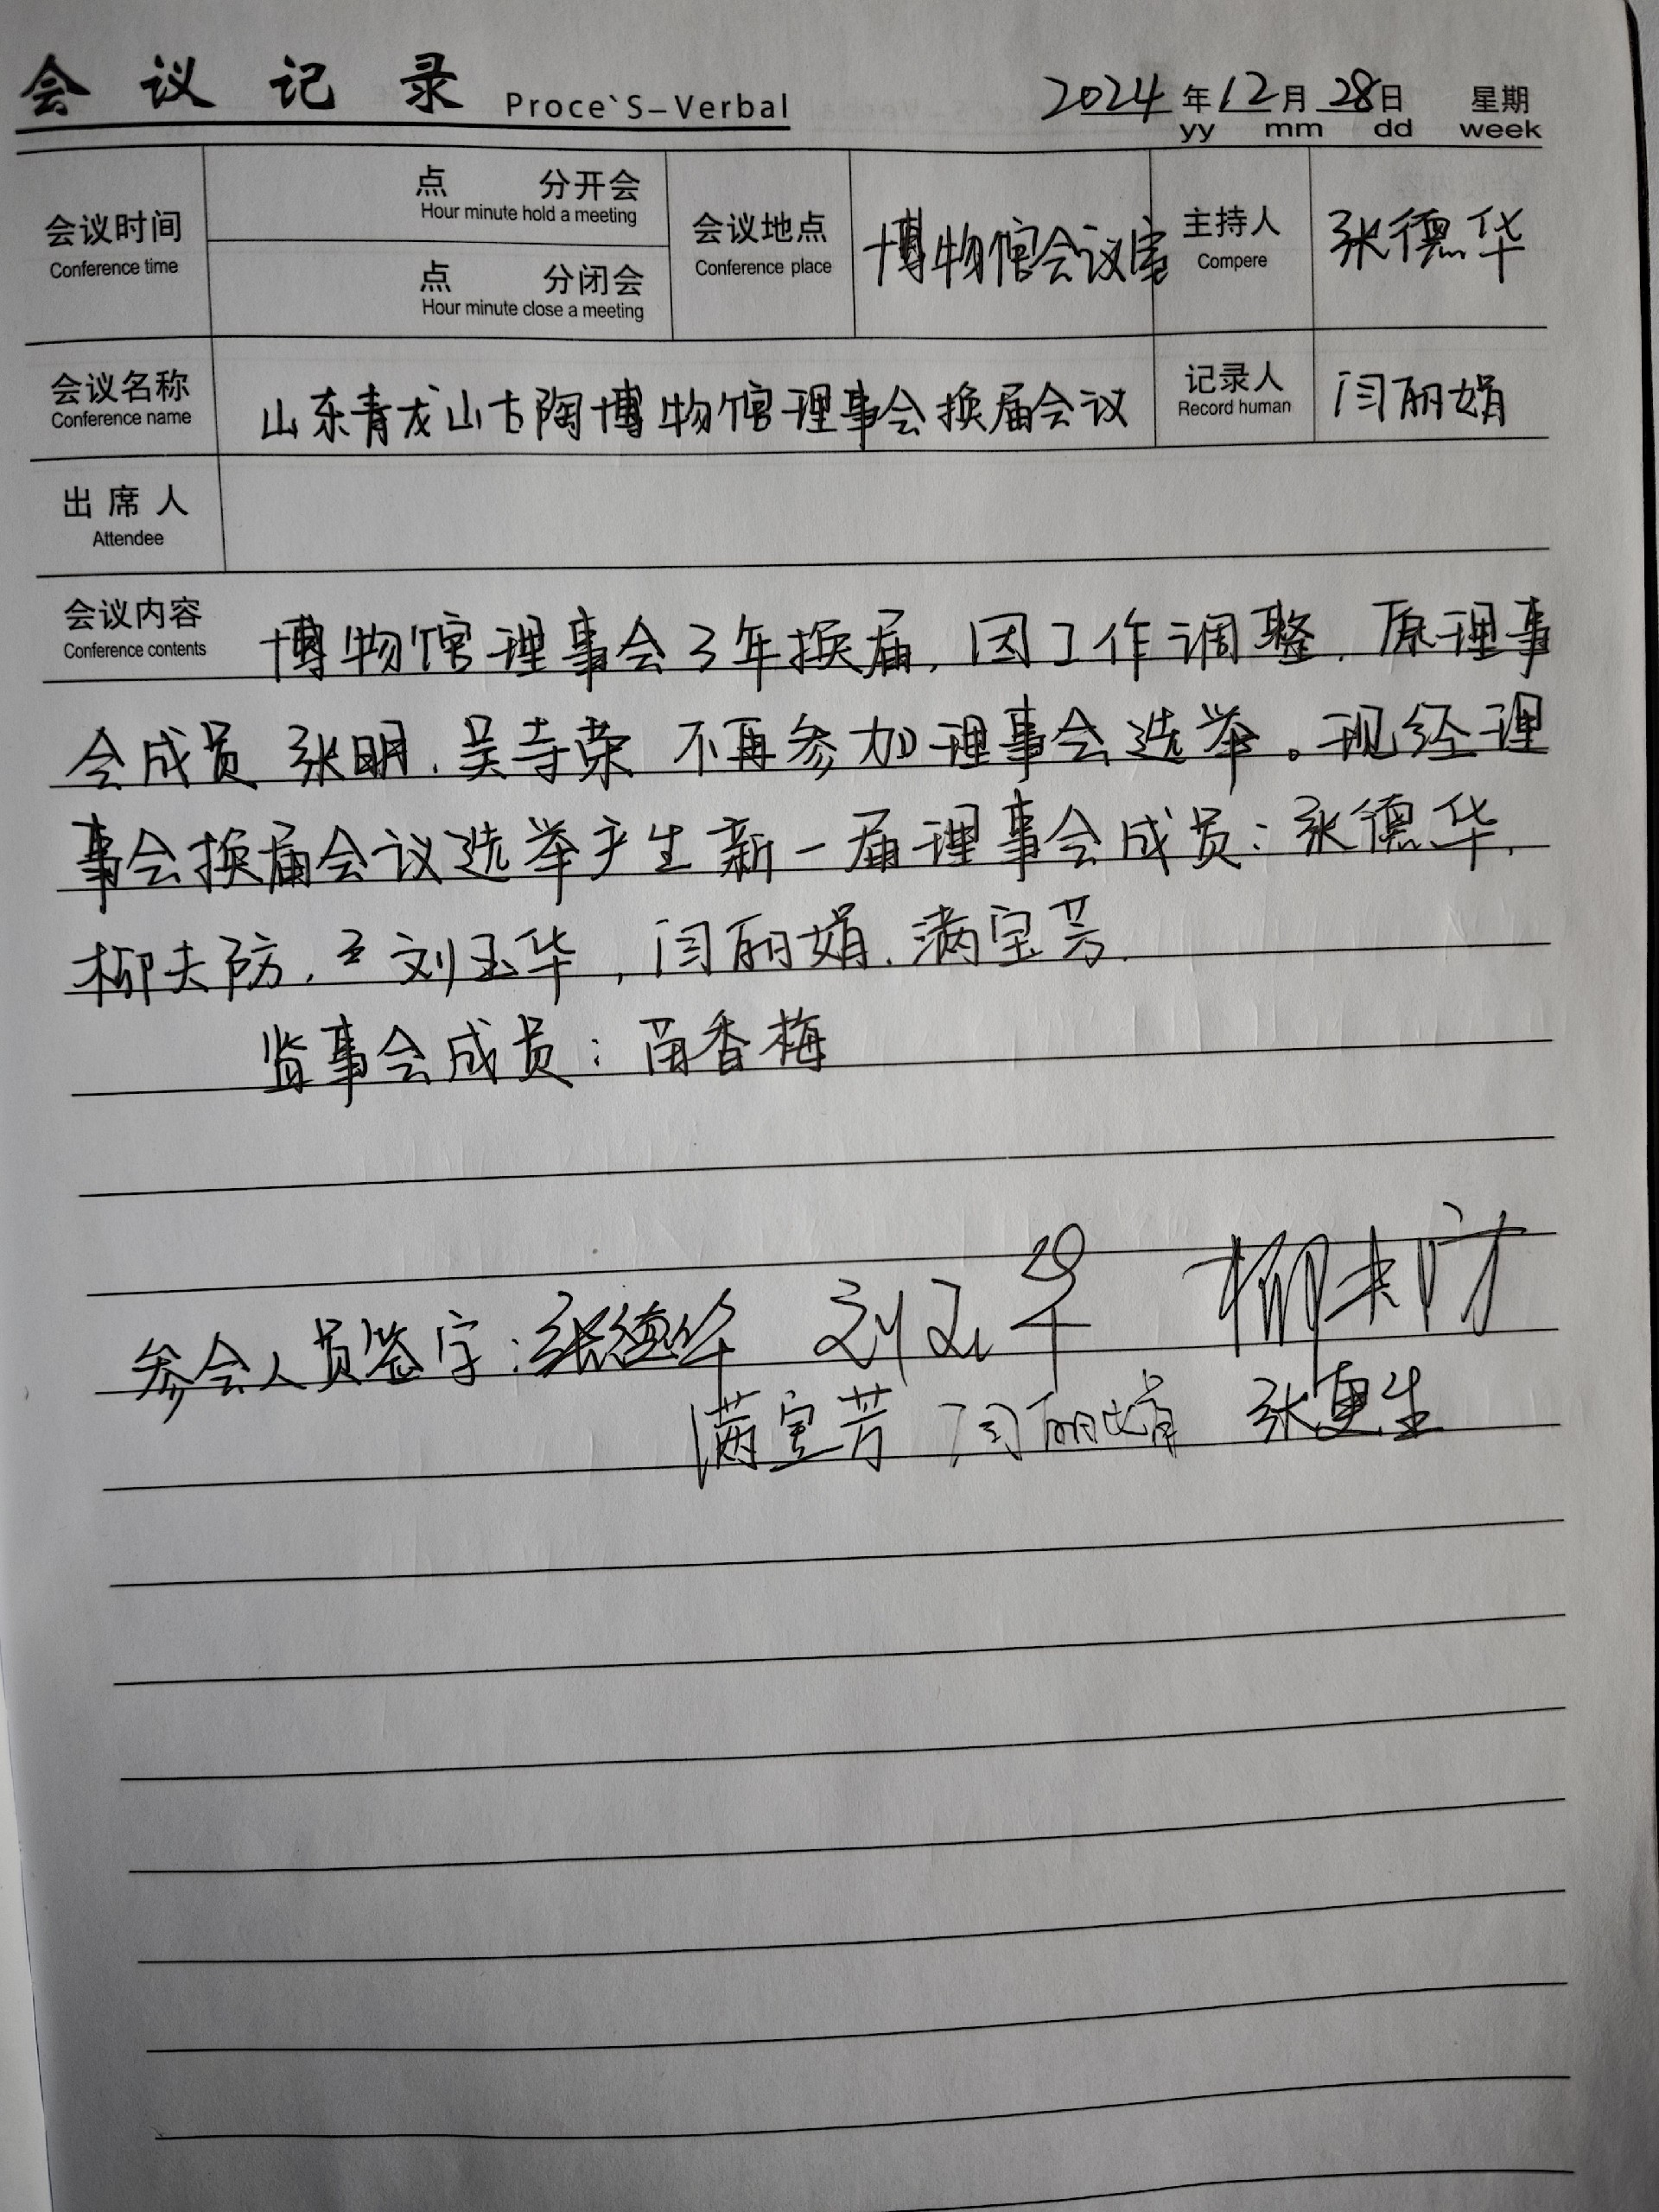 会议记录 Proce`S-Verbal 2024年12月28日 星期
yy mm dd week
会议时间 点 分开会 会议地点 博物馆会议室 主持人 张德华
Conference time Hour minute hold a meeting Conference place Compere
点 分闭会
Hour minute close a meeting
会议名称 山东青龙山古陶博物馆理事会换届会议 记录人 闫丽娟
Conference name Record human
出席人
Attendee
会议内容 博物馆理事会3年换届,因工作调整,原理事
Conference contents
会成员 张明.吴寺荣 不再参加理事会选举。现经理
事会换届会议选举产生新一届理事会成员:张德华,
柳夫防,刘玉华,闫丽娟.满宝芳.
监事会成员:苗香梅
参会人员签字:张德华 刘玉华 柳夫防
满宝芳 闫丽娟 张更生